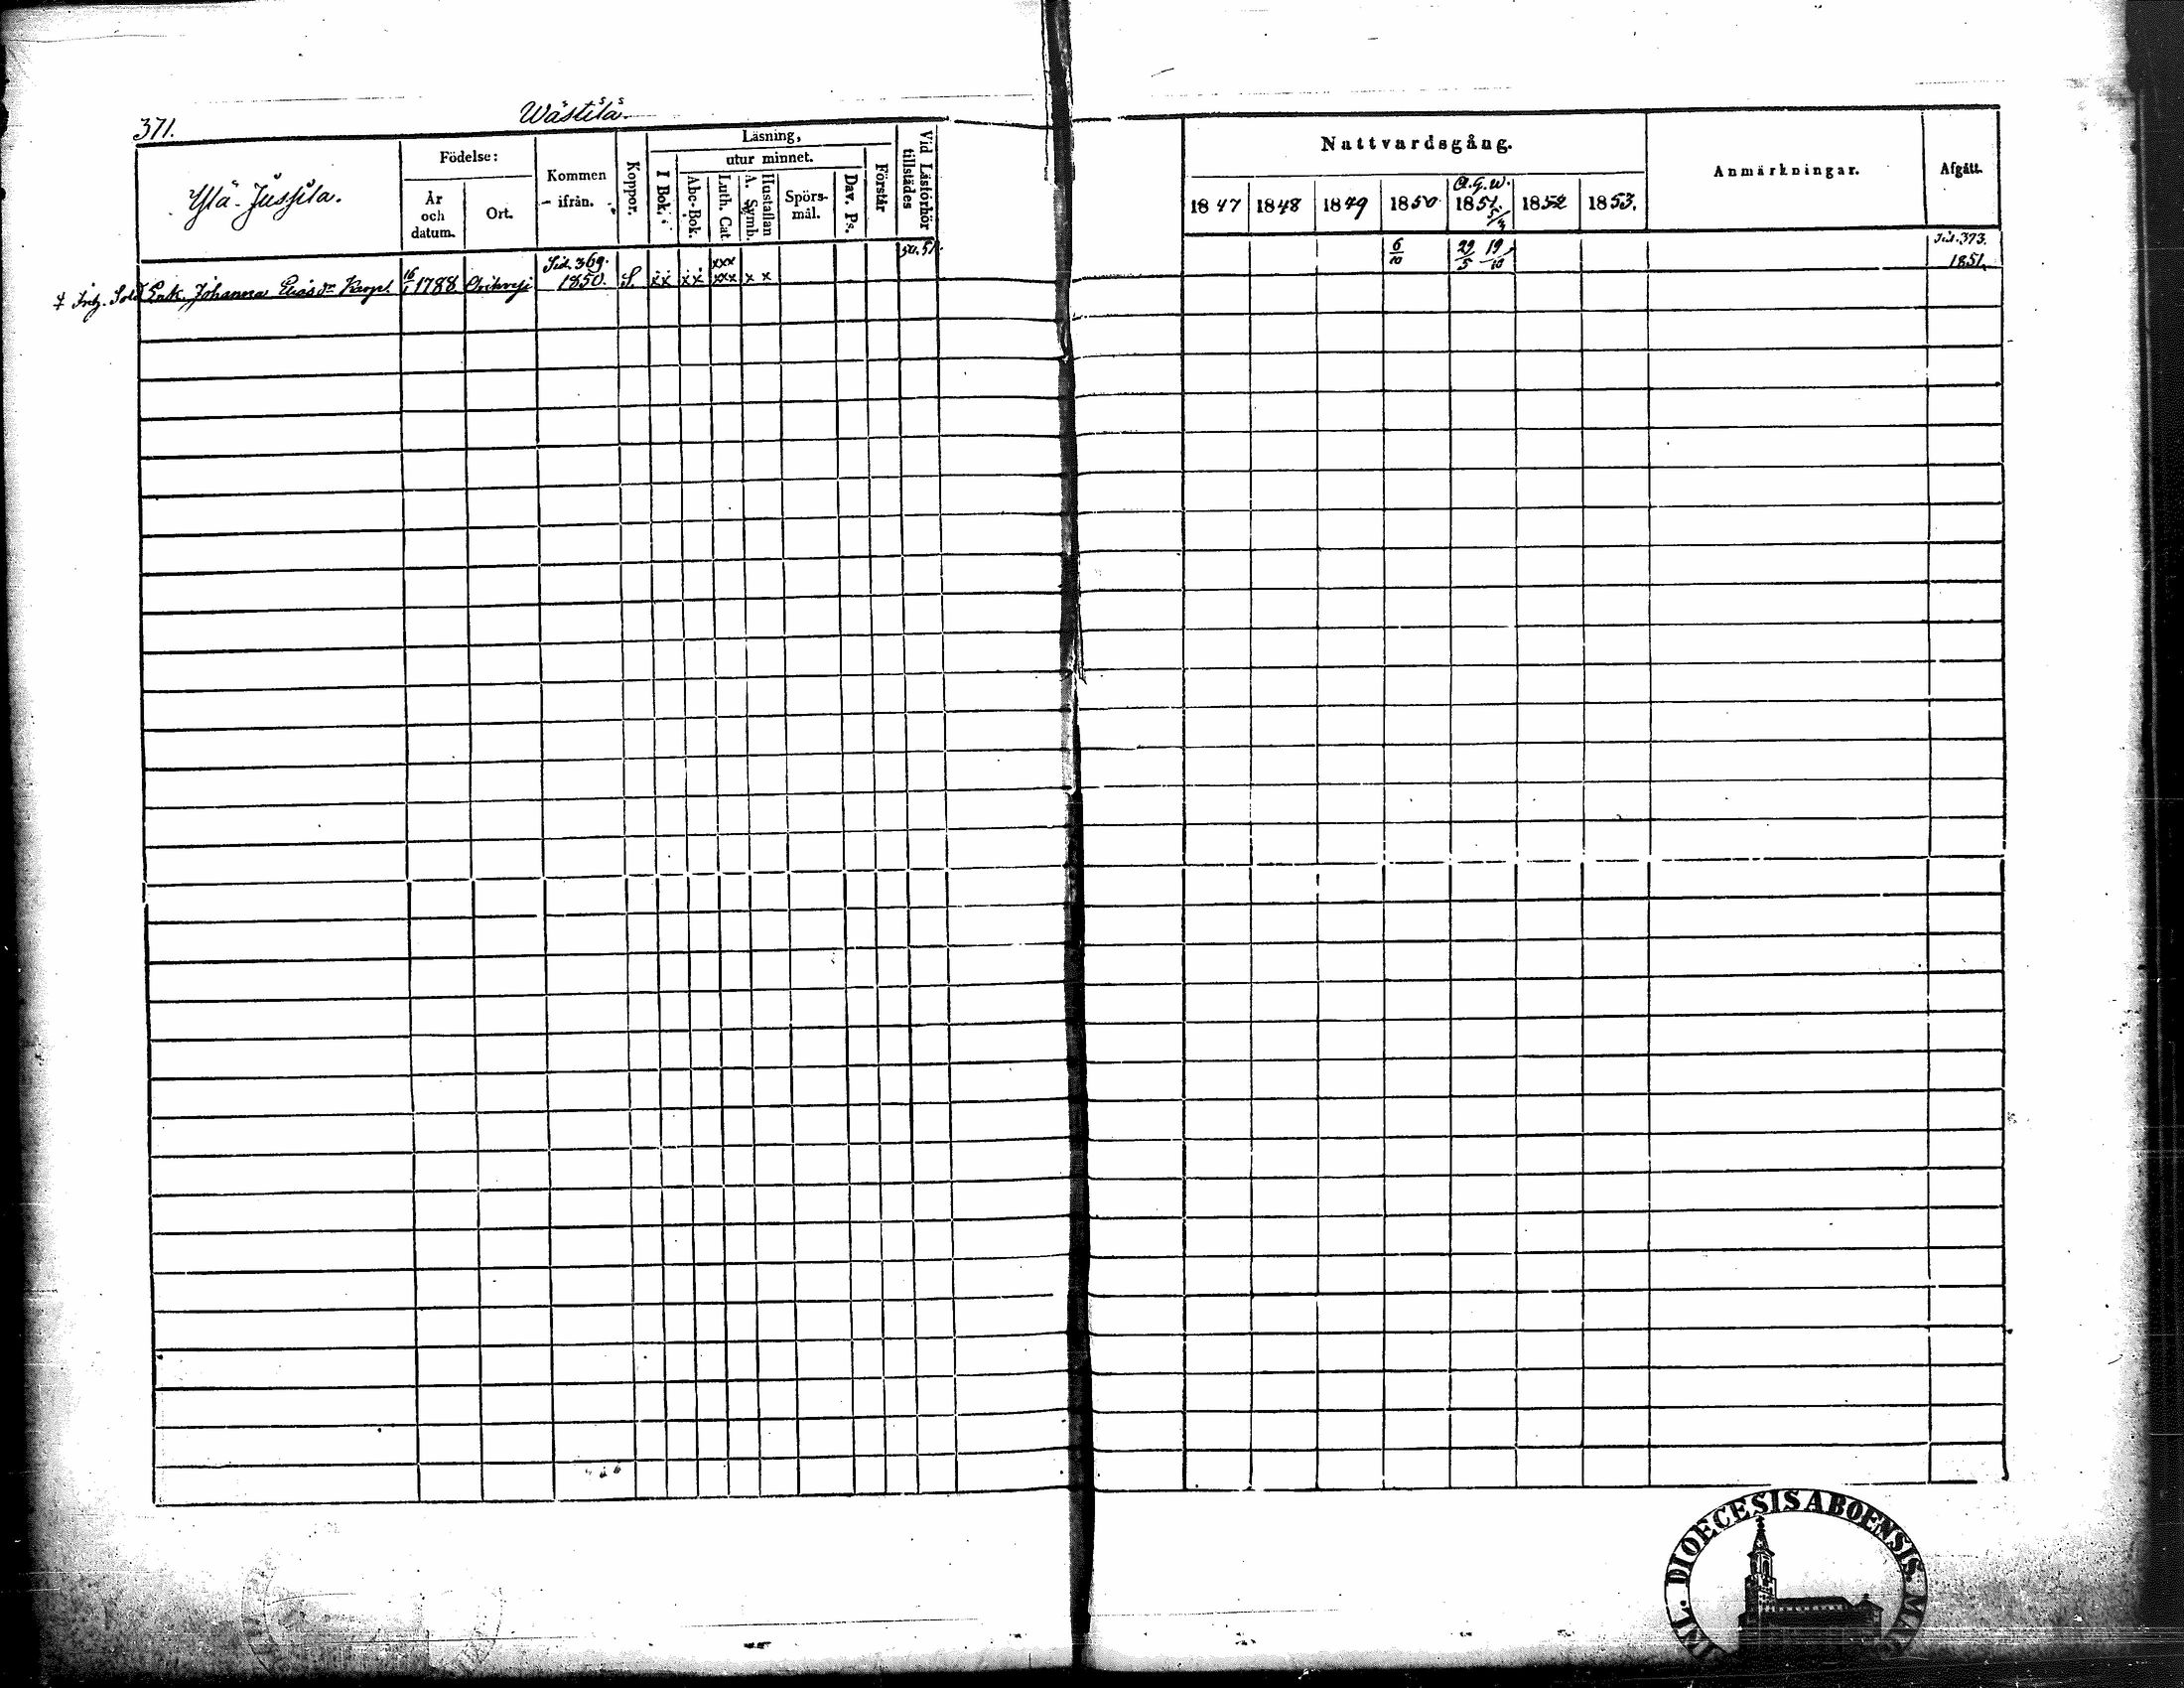 371.
Wästilä
Ylä-Jussila.
Födelse:
År och datum.
Ort.
Kommen ifrån.
Koppor.
Läsning,
I Bok.
utur minnet.
Abc-Bok.
Luth. Cat.
Hustaflan
A. Symb.
Spörs-mål.
Dav. Ps.
Förstår
Vid Läsförhör tillstädes
Nattvardsgång.
1847 1848 1849 1850 1851 1852 1853.
A.G.W.
5/3
Anmärkningar.
Afgått.
Sold Enk. Johanna Eliasdr
16/1 1788
Orihvesi
Sid. 369.
1850.
S.
xx
xx
xxx
xxx
x x
50. 51.
6/10
29/5 19/10
Sid. 373.
1851.
DIOECESIS ABOENSIS